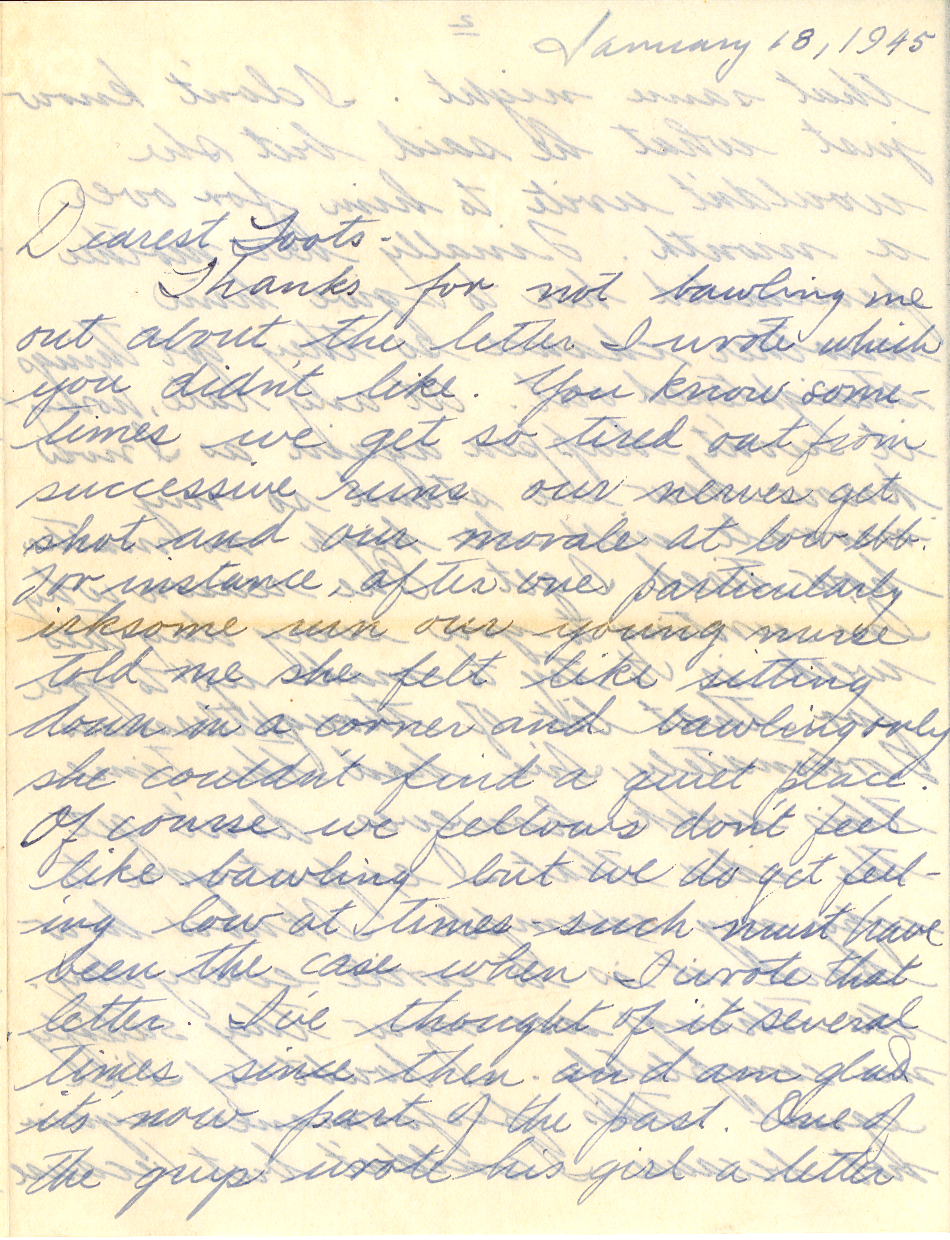 January 18, 1945
Dearest Toots-
Thanks for not bawling me
out about the letter I wrote which
you didn't like. You know some-
times we get so tired out from
successive runs our nerves get
shot and our morale at low ebb.
For instance, after one particularly
irksome run our young nurse
told me she felt like sitting
down in a corner and bawling only
she couldn't find a quiet place.
Of course we fellows don't feel
like bawling but we do get feel-
ing low at times - such must have
been the case when I wrote that
letter. I've thought of it several
times since then and am glad
it's now part of the past. One of
the guys wrote his girl a letter